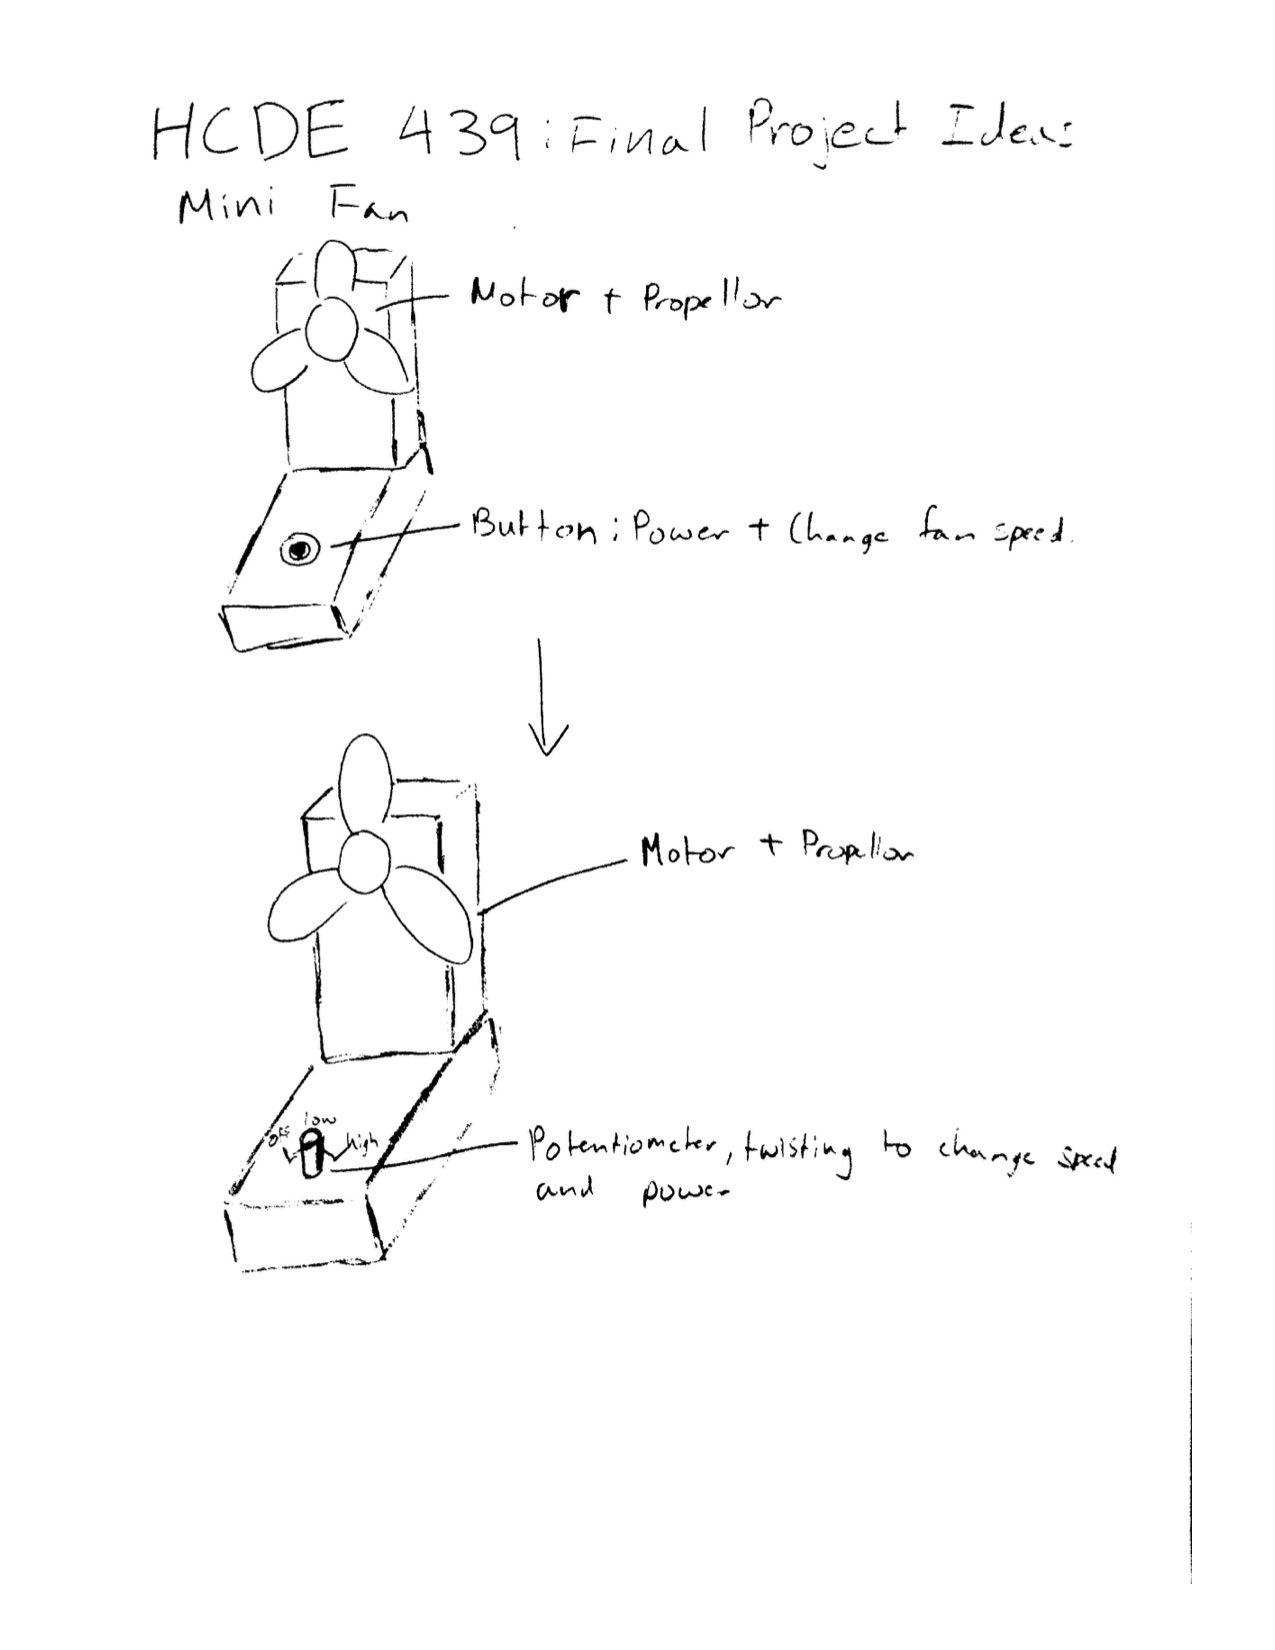 HCDE 439: Final Project Ideas
Mini Fan
Motor + Propellor
Button: Power + Change fan speed.
Motor + Propellor
off low high
Potentiometer, twisting to change speed
and power